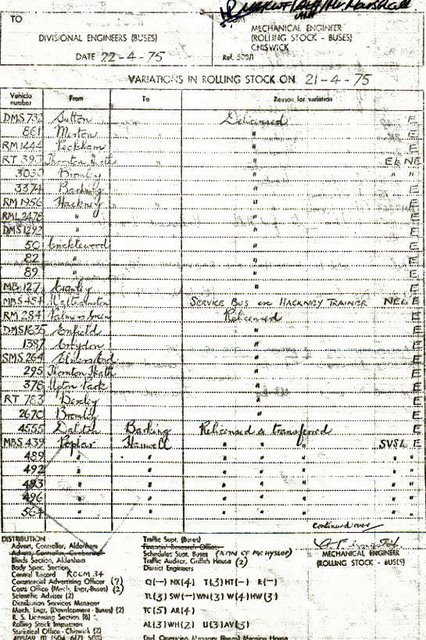 TO
DIVISIONAL ENGINEERS (BUSES)
DATE 22-4-75
MECHANICAL ENGINEER
(ROLLING STOCK - BUSES)
CHISWICK
Ref. 509/1
VARIATIONS IN ROLLING STOCK ON 21-4-75
Vehicle number From To Reason for variation
DMS 732 Sutton Delicensed E
861 Merton " E
RM 1444 Peckham " E
RT 393 Thornton Heath " EL NE
3050 Bromley " " "
3374 Barking " E
RM 1956 Hackney " E
RML 2478 " " E
DMS 1292 " " E
50 Cricklewood " E
82 " " E
89 " " E
MB 127 Bromley " E
MBS 454 Walthamstow SERVICE BUS on HACKNEY TRAINER NEL E
RM 284 Palmers Green Relicensed E
DMS 1635 Enfield " E
1387 Croydon " E
SMS 264 " E
295 Thornton Heath " E
378 Upton Park " E
RT 783 Bexley " E
2670 Bromley " E
4555 Dalston Barking Relicensed & transferred E
MBS 439 Poplar Hanwell " " " SVSL E
489 " " " " " " "
492 " " " " " " "
493 " " " " " " "
496 " " " " " " "
564 " " " " " " "
continued over
DISTRIBUTION
Advert. Controller, Aldenham
Blinds Section, Aldenham
Body Spec. Section,
Central Record ROOM 34
Commercial Advertising Officer (2)
Costs Office (Mech. Engr. Buses) (2)
Scientific Adviser (2)
Distribution Services Manager
Mech. Engr. (Development - Buses) (2)
R. S. Licensing Section (8)
Rolling Stock Inspection
Statistical Office - Chiswick (2)
Traffic Supt. (Buses)
Financial Research Officer
Schedules Supt. Buses
Traffic Auditor, Griffith House (2)
District Engineers
Q(-) NK(4) T(3) HT(-) R(-)
TL(3) SW(-) WN(3) W(4) HW(3)
TC(5) AR(4)
AL(3) WH(2) U(3) AV(3)
MECHANICAL ENGINEER
(ROLLING STOCK - BUSES)